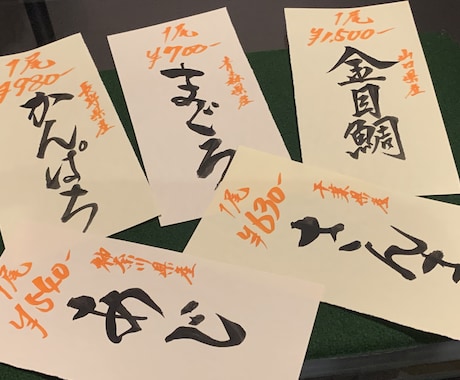 1尾
¥980-
長崎県産
かんぱち
1尾
¥700-
青森県産
まぐろ
1尾
¥1,500-
山口県産
金目鯛
1尾
¥630-
千葉県産
さんま
1尾
¥540-
神奈川県産
あじ